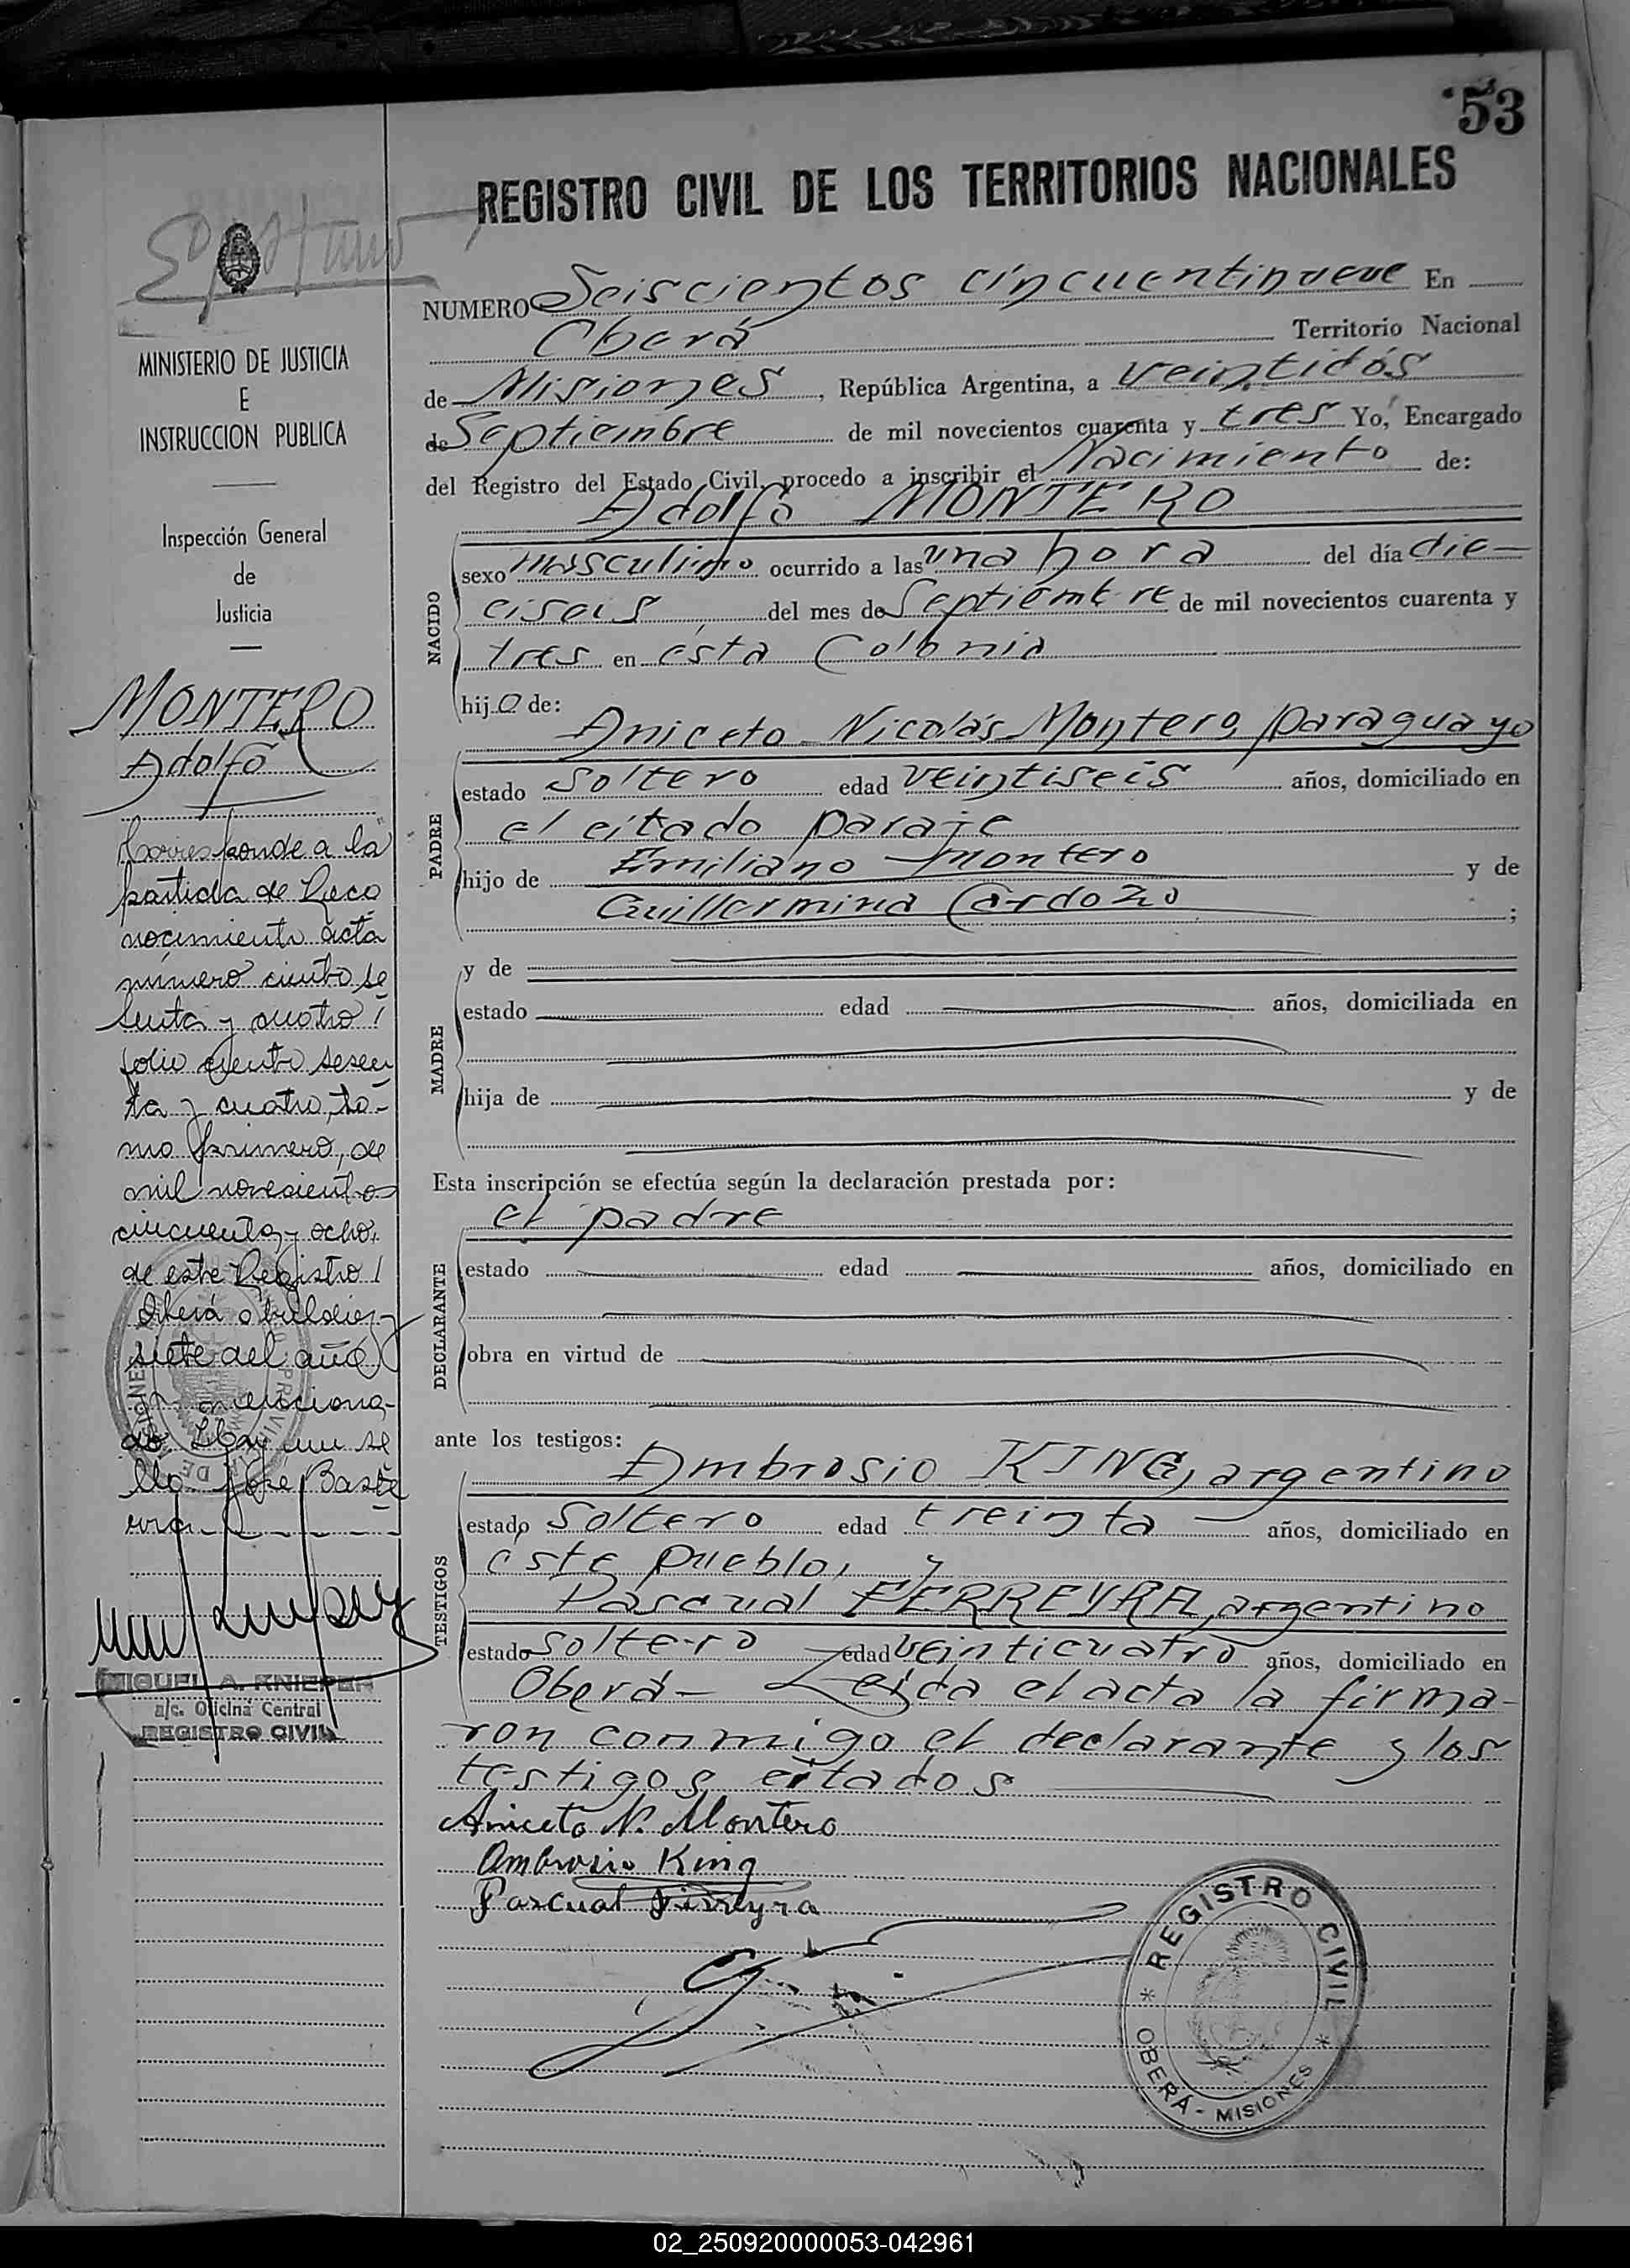 53
REGISTRO CIVIL DE LOS TERRITORIOS NACIONALES
MINISTERIO DE JUSTICIA
E
INSTRUCCION PUBLICA
Inspección General
de
Justicia
MONTERO
Adolfo
Corresponde a la
partida de Reco
nocimiento acta
número ciento se
senta y cuatro
folio ciento sesen
ta y cuatro, to-
mo primero, de
mil novecientos
cincuenta y ocho,
de este Registro
Oberá
siete del año
menciona-
do. Hay un se
llo. José Baste
rra
MIGUEL A. KNIEPER
a/c. Oficina Central
REGISTRO CIVIL
NUMERO Seiscientos cincuentinueve En
Oberá Territorio Nacional
de Misiones, República Argentina, a veintidós
de Septiembre de mil novecientos cuarenta y tres Yo, Encargado
del Registro del Estado Civil, procedo a inscribir el Nacimiento de:
Adolfo MONTERO
NACIDO
sexo masculino ocurrido a las una hora del día die-
ciseis del mes de Septiembre de mil novecientos cuarenta y
tres en ésta Colonia
hijo de:
Aniceto Nicolás Montero, paraguayo
PADRE
estado soltero edad veintiseis años, domiciliado en
el citado paraje
hijo de Emiliano Montero y de
Guillermina Cardozo ;
MADRE
y de
estado edad años, domiciliada en
hija de y de
Esta inscripción se efectúa según la declaración prestada por:
el padre
DECLARANTE
estado edad años, domiciliado en
obra en virtud de
ante los testigos:
Ambrosio KING, argentino
TESTIGOS
estado soltero edad treinta años, domiciliado en
éste pueblo, y
Pascual FERREYRA, argentino
estado soltero edad veinticuatro años, domiciliado en
Oberá- Leída el acta la firma-
ron conmigo el declarante y los
testigos citados
Aniceto N. Montero
Ambrosio King
Pascual Ferreyra
REGISTRO CIVIL
OBERÁ - MISIONES
02_250920000053-042961